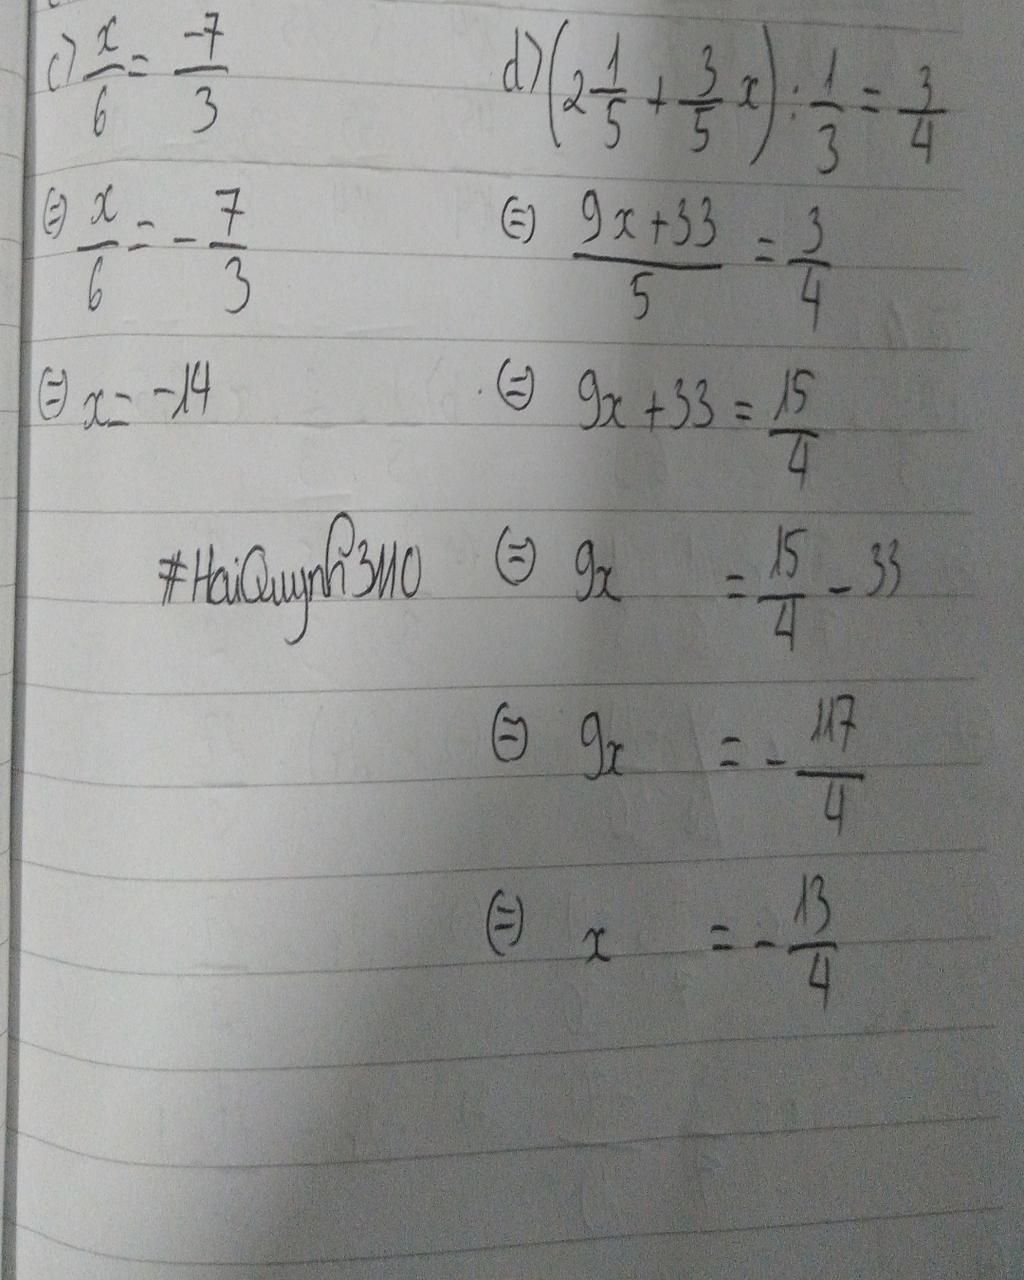 c) x/6 = -7/3
⇔ x/6 = - 7/3
⇔ x = -14
#HaiQuynh3110
d) (2 1/5 + 3/5 x) : 1/3 = 3/4
⇔ 9x+33/5 = 3/4
⇔ 9x + 33 = 15/4
⇔ 9x = 15/4 - 33
⇔ 9x = - 117/4
⇔ x = - 13/4